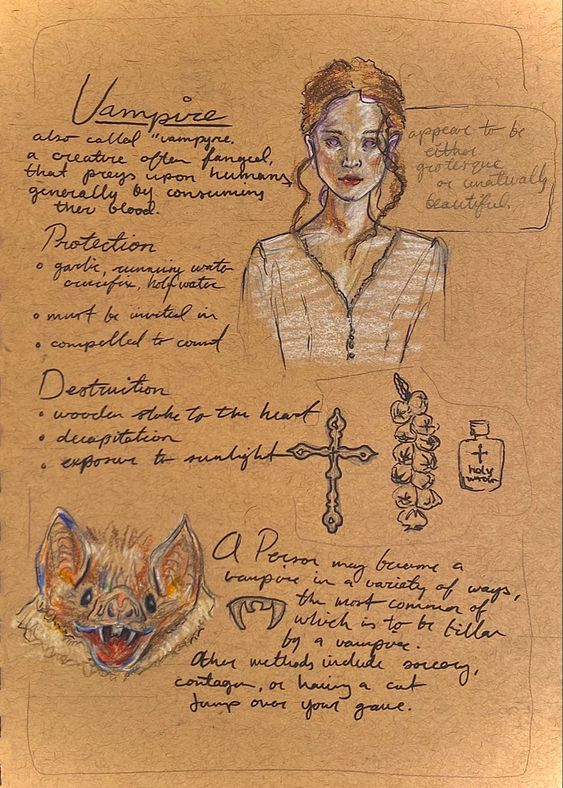 Vampire
also called "vampyre.
a creature often fanged,
that preys upon humans,
generally by consuming
ther blood.
appear to be
either
grotesque
or unaturally
beautiful.
Protection
• garlic, running water
crucifix, holy water
• must be invited in
• compelled to count
Destruction
• wooden stake to the heart
• decapitation
• exposure to sunlight
holy
water
A Person may become a
vampire in a variety of ways,
the most common of
which is to be bitten
by a vampire.
Other methods include sorcery,
contagon, or having a cat
jump over your grave.